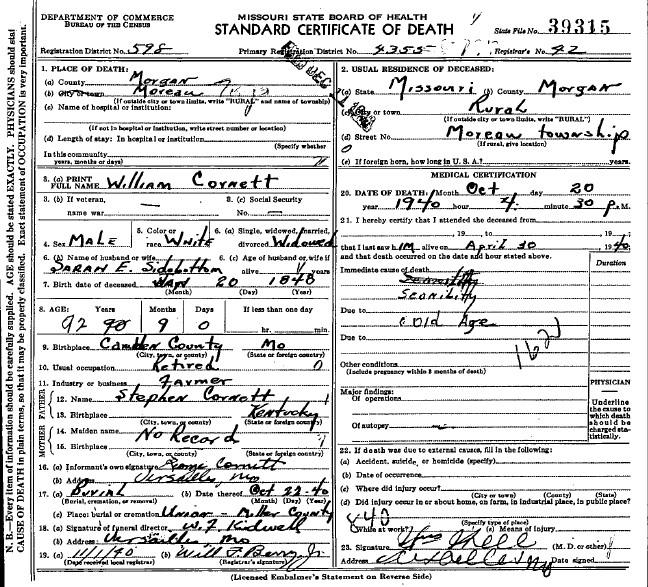 DEPARTMENT OF COMMERCE
BUREAU OF THE CENSUS
MISSOURI STATE BOARD OF HEALTH
STANDARD CERTIFICATE OF DEATH
State File No. 39315
Registration District No. 598
Primary Registration District No. 4355
Registrar's No. 42
N. B.—Every item of information should be carefully supplied. AGE should be stated EXACTLY. PHYSICIANS should state
CAUSE OF DEATH in plain terms, so that it may be properly classified. Exact statement of OCCUPATION is very important.
1. PLACE OF DEATH:
(a) County Morgan
(b) City or town Moreau
(If outside city or town limits, write "RURAL" and name of township)
(c) Name of hospital or institution:
(If not in hospital or institution, write street number or location)
(d) Length of stay: In hospital or institution
(Specify whether
In this community
years, months or days)
2. USUAL RESIDENCE OF DECEASED:
(a) State Missouri (b) County Morgan
(c) City or town Rural
(If outside city or town limits, write "RURAL")
(d) Street No. Moreau township
(If rural, give location)
(e) If foreign born, how long in U. S. A.? years.
3. (a) PRINT
FULL NAME William Cornett
3. (b) If veteran,
name war
3. (c) Social Security
No.
4. Sex Male
5. Color or
race White
6. (a) Single, widowed, married,
divorced Widowed
6. (b) Name of husband or wife
Sarah E. Sidebottom
6. (c) Age of husband or wife if
alive years
7. Birth date of deceased Jan 20 1848
(Month) (Day) (Year)
8. AGE: Years Months Days If less than one day
92 9 0 hr. min.
9. Birthplace Camden County Mo
(City, town, or county) (State or foreign country)
10. Usual occupation Retired
11. Industry or business Farmer
FATHER
12. Name Stephen Cornett
13. Birthplace Kentucky
(City, town, or county) (State or foreign country)
MOTHER
14. Maiden name No Record
15. Birthplace
(City, town, or county) (State or foreign country)
16. (a) Informant's own signature Cornett
(b) Address Versailles, Mo
17. (a) Burial (b) Date thereof Oct 22-40
(Burial, cremation, or removal) (Month) (Day) (Year)
(c) Place: burial or cremation Union - Miller County
18. (a) Signature of funeral director W. F. Kidwell
(b) Address: Versailles, Mo
19. (a) 11/1/40 (b) Will F. Berry, Jr.
(Date received local registrar) (Registrar's signature)
MEDICAL CERTIFICATION
20. DATE OF DEATH: Month Oct day 20
year 1940 hour 4 minute 30 P.M.
21. I hereby certify that I attended the deceased from
, 19 , to , 19 ;
that I last saw him alive on April 30 1940
and that death occurred on the date and hour stated above.
Duration
Immediate cause of death
Scenility
Due to Old Age
Due to
162
Other conditions
(Include pregnancy within 3 months of death)
Major findings:
Of operations
Of autopsy
PHYSICIAN
Underline
the cause to
which death
should be
charged sta-
tistically.
22. If death was due to external causes, fill in the following:
(a) Accident, suicide, or homicide (specify)
(b) Date of occurrence
(c) Where did injury occur?
(City or town) (County) (State)
(d) Did injury occur in or about home, on farm, in industrial place, in public place?
840
(Specify type of place)
While at work? (e) Means of injury
23. Signature (M. D. or other)
Address Date signed
(Licensed Embalmer's Statement on Reverse Side)